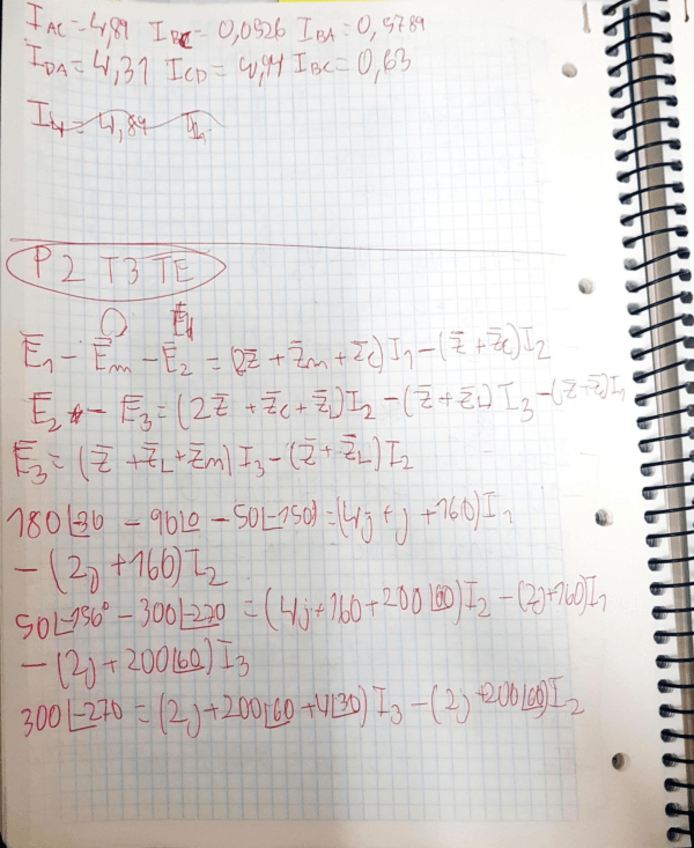 I_AC = 4,89 I_BC = 0,0526 I_BA = 0,5789
I_DA = 4,31 I_CD = 4,94 I_BC = 0,63
I_4 = 4,89 I_1
P2 T3 TE
Ē_1 - Ē_m - Ē_2 = (2z̄ + z̄_m + z̄_c) I_1 - (z̄ + z̄_c) I_2
Ē_2 - Ē_3 = (2z̄ + z̄_c + z̄_L) I_2 - (z̄ + z̄_L) I_3 - (z̄ + z̄) I_1
Ē_3 = (z̄ + z̄_L + z̄_m) I_3 - (z̄ + z̄_L) I_2
180∠30 - 90∠0 - 50∠-150 = (4j + j + 160) I_1
- (2j + 160) I_2
50∠-150° - 300∠-270 = (4j + 160 + 200∠60) I_2 - (2j + 160) I_1
- (2j + 200∠60) I_3
300∠-270 = (2j + 200∠60 + 4∠30) I_3 - (2j + 200∠60) I_2